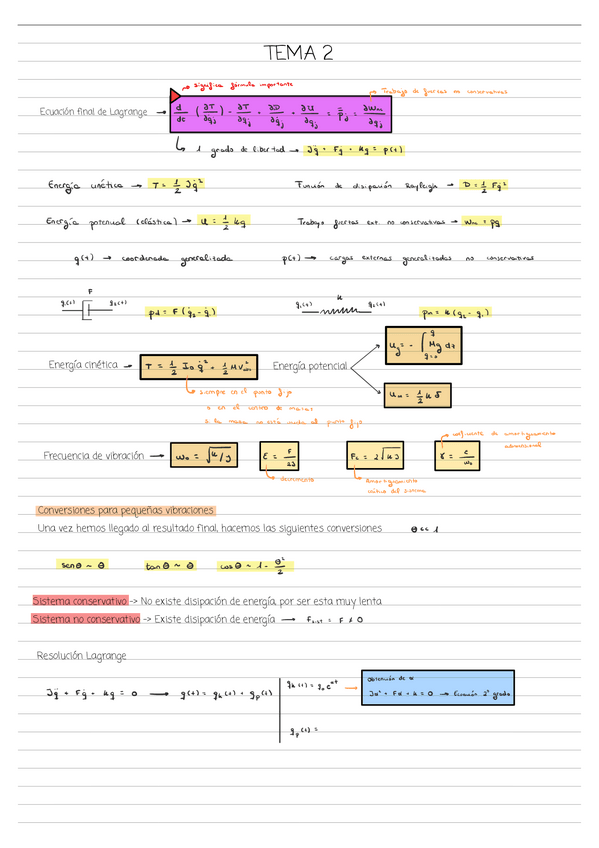 TEMA 2
significa fórmula importante
Trabajo de fuerzas no conservativas
Ecuación final de Lagrange → d/dt (∂T/∂q̇j) - ∂T/∂qj + ∂D/∂q̇j + ∂U/∂qj = p̄j = ∂Wnc/∂qj
1 grado de libertad → Jq̈ + Fq̇ + Kq = p(t)
Energía cinética → T = 1/2 Jq̇² Función de disipación Rayleigh → D = 1/2 Fq̇²
Energía potencial (elástica) → U = 1/2 kq Trabajo fuertas ext. no conservativas → Wnc = pq
q(t) → coordenada generalitada p(t) → cargas externas generalitadas no conservativas
F
q1(t) q2(t) pd = F (q̇2 - q̇1)
k
q1(t) q2(t) pn = k (q2 - q1)
Energía cinética → T = 1/2 I0 q̇² + 1/2 M V²
Energía potencial
Ug = - ∫ Mg dz
q=0
Uk = 1/2 k δ
siempre en el punto fijo
o en el centro de masas
Frecuencia de vibración → ω0 = √k/J
ε = F/2J
Fc = 2√kJ
γ = ε/ω0
coeficiente de amortiguamiento
adimensional
decremento
Amortiguamiento
crítico del sistema
Conversiones para pequeñas vibraciones
Una vez hemos llegado al resultado final, hacemos las siguientes conversiones θ << 1
senθ ~ θ tanθ ~ θ cosθ = 1 - θ²/2
Sistema conservativo -> No existe disipación de energía, por ser esta muy lenta
Sistema no conservativo -> Existe disipación de energía → Fsist = F ≠ 0
Resolución Lagrange
Jq̈ + Fq̇ + kq = 0 → q(t) = qh(t) + qp(t)
qh(t) = q0 e^αt →
obtención de α
Jα² + Fα + k = 0 → Ecuación 2º grado
qp(t) =